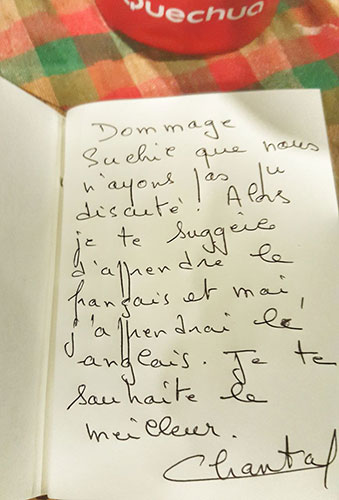 Quechua
Dommage
Suchie que nous
n'ayons pas pu
discuté! Alors
je te suggère
d'apprendre le
français et moi,
j'apprendrai le
anglais. Je te
souhaite le
meilleur.
Chantal